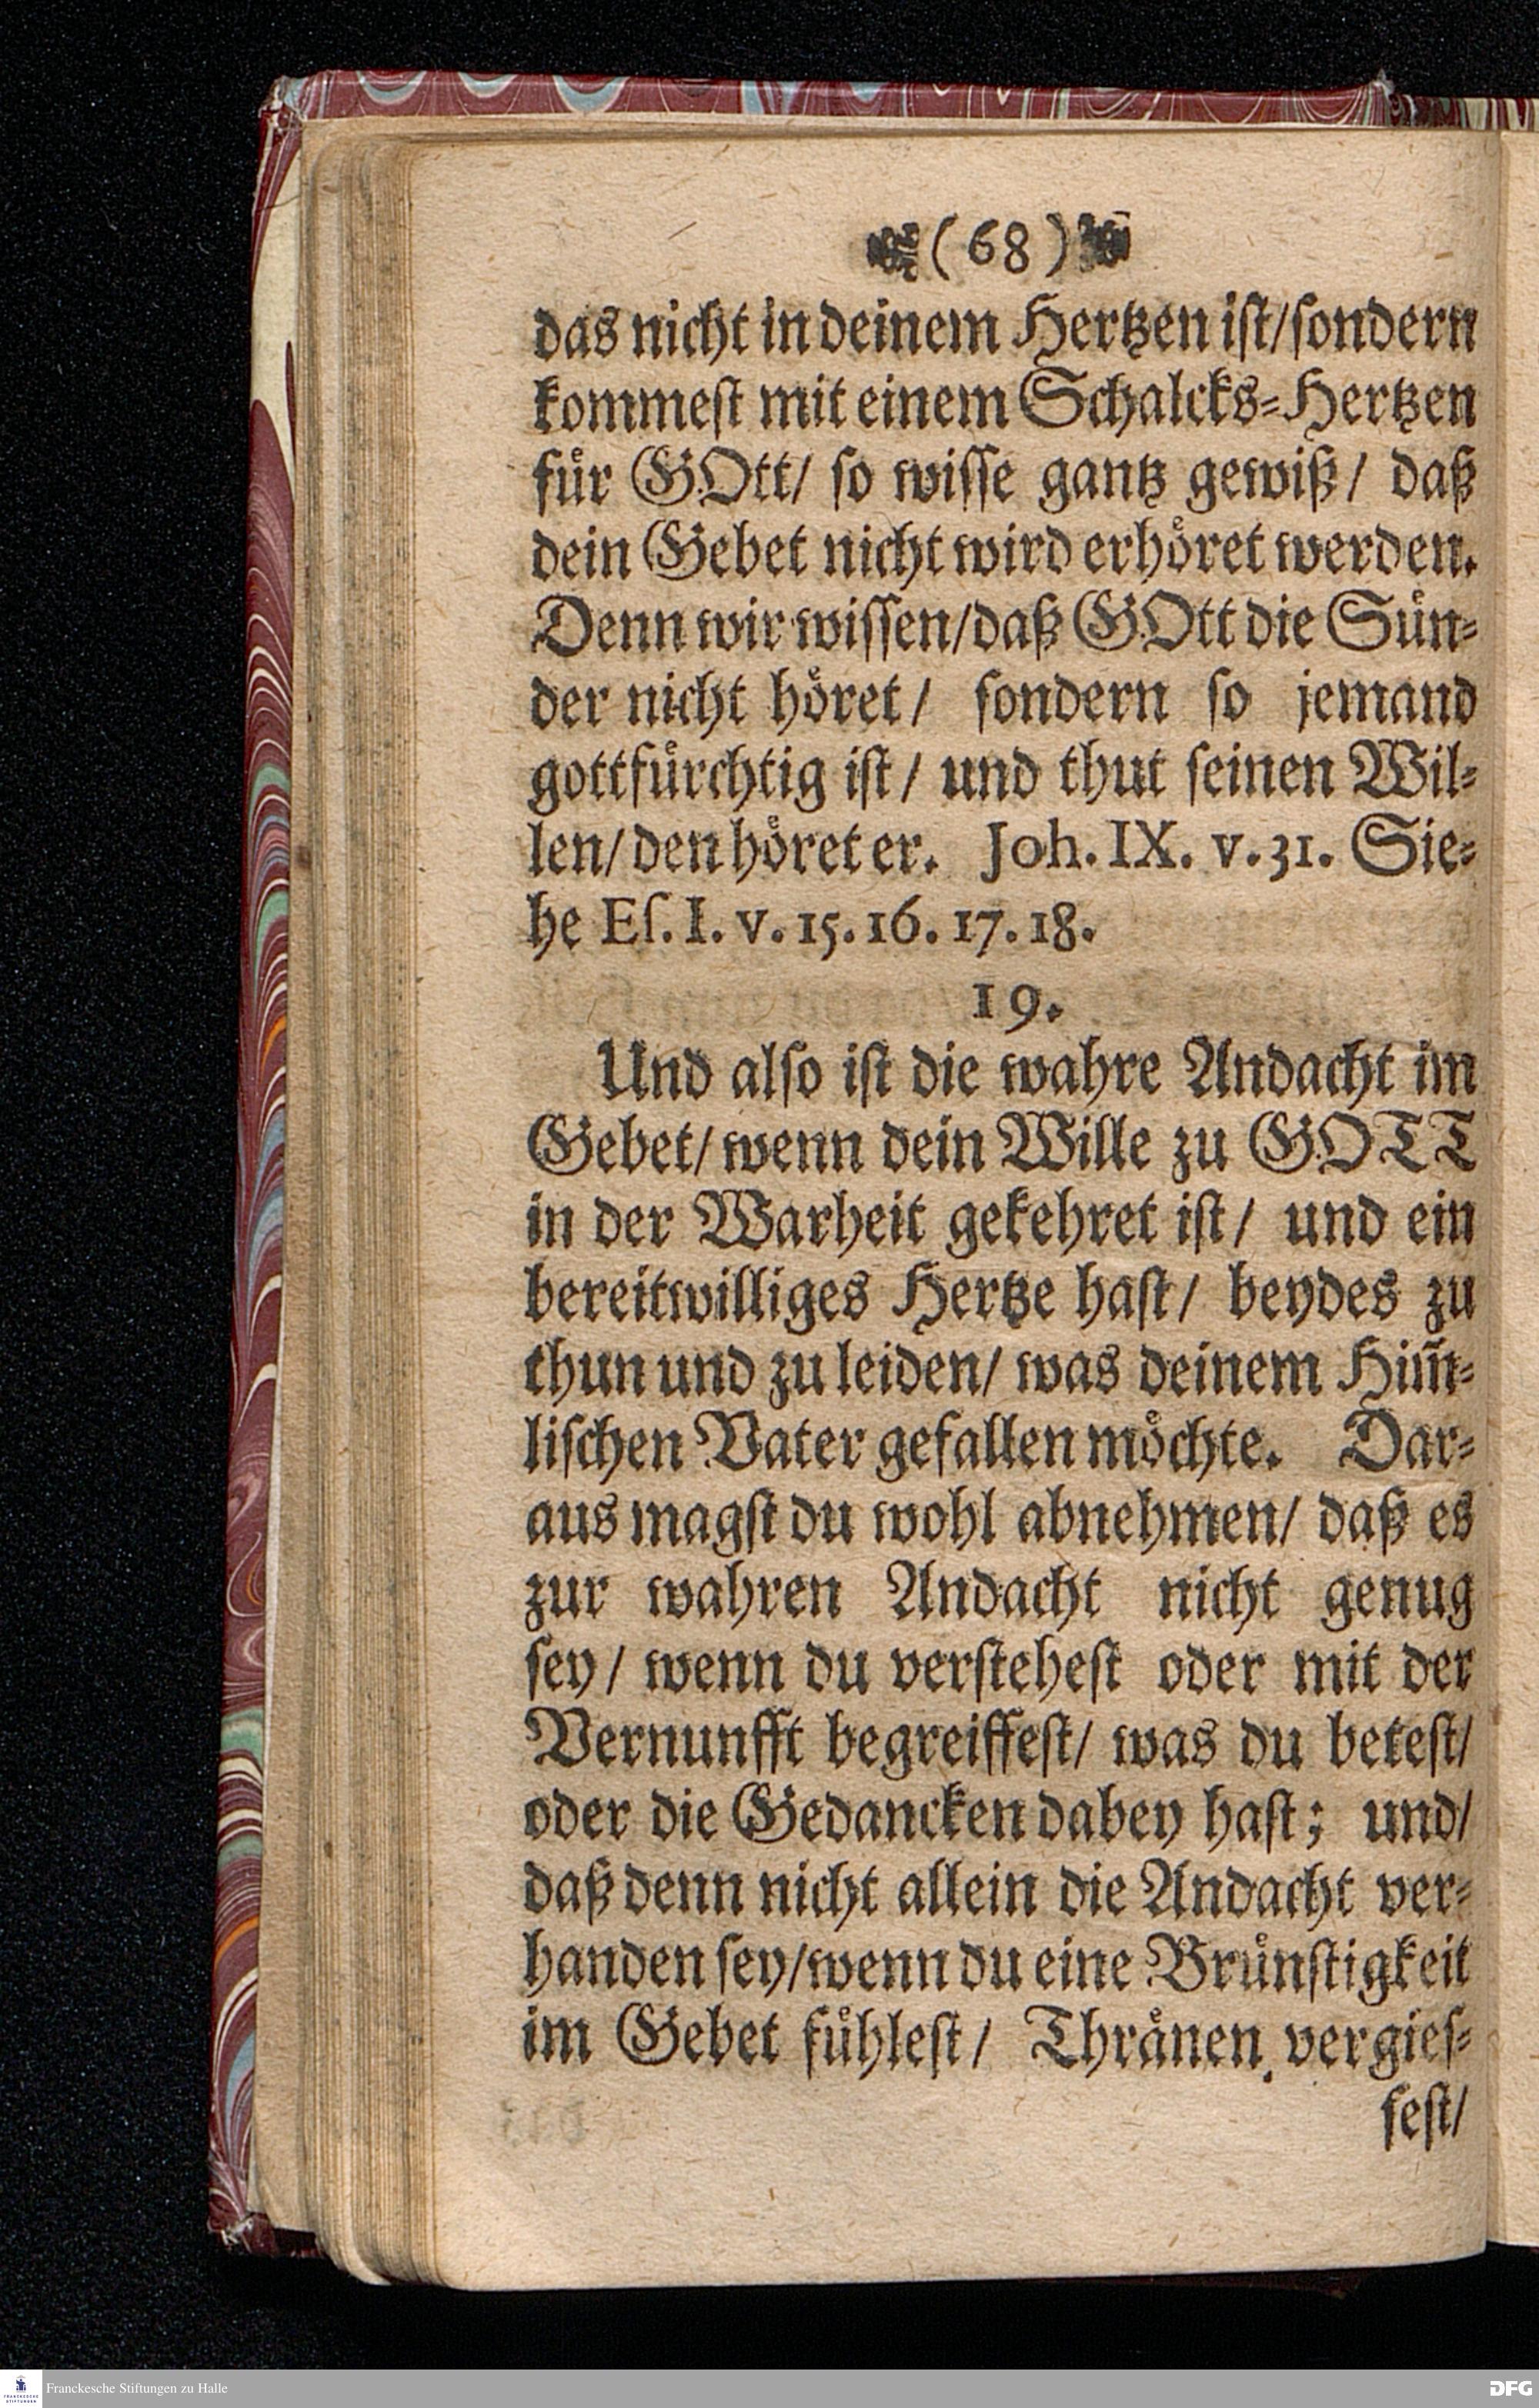 (68)
das nicht in deinem Hertzen ist/sondern
kommest mit einem Schalcks-Hertzen
fuͤr GOtt/ so wisse gantz gewiß/ daß
dein Gebet nicht wird erhoͤret werden.
Denn wir wissen/daß GOtt die Suͤn-
der nicht hoͤret/ sondern so jemand
gottfuͤrchtig ist/ und thut seinen Wil-
len/den hoͤret er. Joh. IX. v. 31. Sie-
he Eſ. I. v. 15. 16. 17. 18.
19.
Und also ist die wahre Andacht im
Gebet/wenn dein Wille zu GOTT
in der Warheit gekehret ist/ und ein
bereitwilliges Hertze hast/ beydes zu
thun und zu leiden/ was deinem Him̃-
lischen Vater gefallen moͤchte. Dar-
aus magst du wohl abnehmen/ daß es
zur wahren Andacht nicht genug
sey/ wenn du verstehest oder mit der
Vernunfft begreiffest/ was du betest/
oder die Gedancken dabey hast; und/
daß denn nicht allein die Andacht ver-
handen sey/wenn du eine Bruͤnstigkeit
im Gebet fuͤhlest/ Thraͤnen vergies-
sest/
Franckesche Stiftungen zu Halle
DFG
FRANCKESCHE
STIFTUNGEN